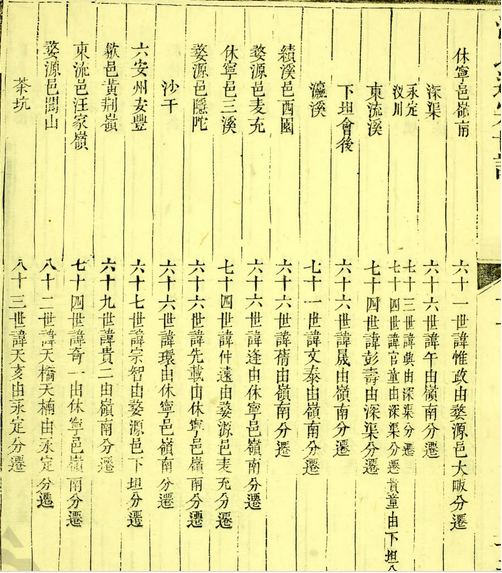 休寧邑嶺南 六十一世諱惟政由婺源邑大畈分遷
深渠 六十六世諱午由嶺南分遷
永定 七十三世諱與由深渠分遷
汊川 七十四世諱官童由深渠分遷貴童由下坦分
東流溪 七十四世諱彭壽由深渠分遷
下坦會後 六十六世諱晟由嶺南分遷
瀛溪 七十一世諱文泰由嶺南分遷
績溪邑西園 六十六世諱蒨由嶺南分遷
婺源邑麦充 六十六世諱逢由休寧邑嶺南分遷
休寧邑三溪 七十四世諱仲遠由婺源邑麦充分遷
婺源邑隱陀 六十六世諱先載由休寧邑嶺南分遷
沙干 六十六世諱環由休寧邑嶺南分遷
六安州安豐 六十七世諱宗智由婺源邑下坦分遷
歙邑黃荆嶺 六十九世諱貴二由嶺南分遷
東流邑汪家嶺 七十四世諱奇一由休寧邑嶺南分遷
婺源邑閬山 八十二世諱天橋天楠由永定分遷
茶坑 八十三世諱天亥由永定分遷